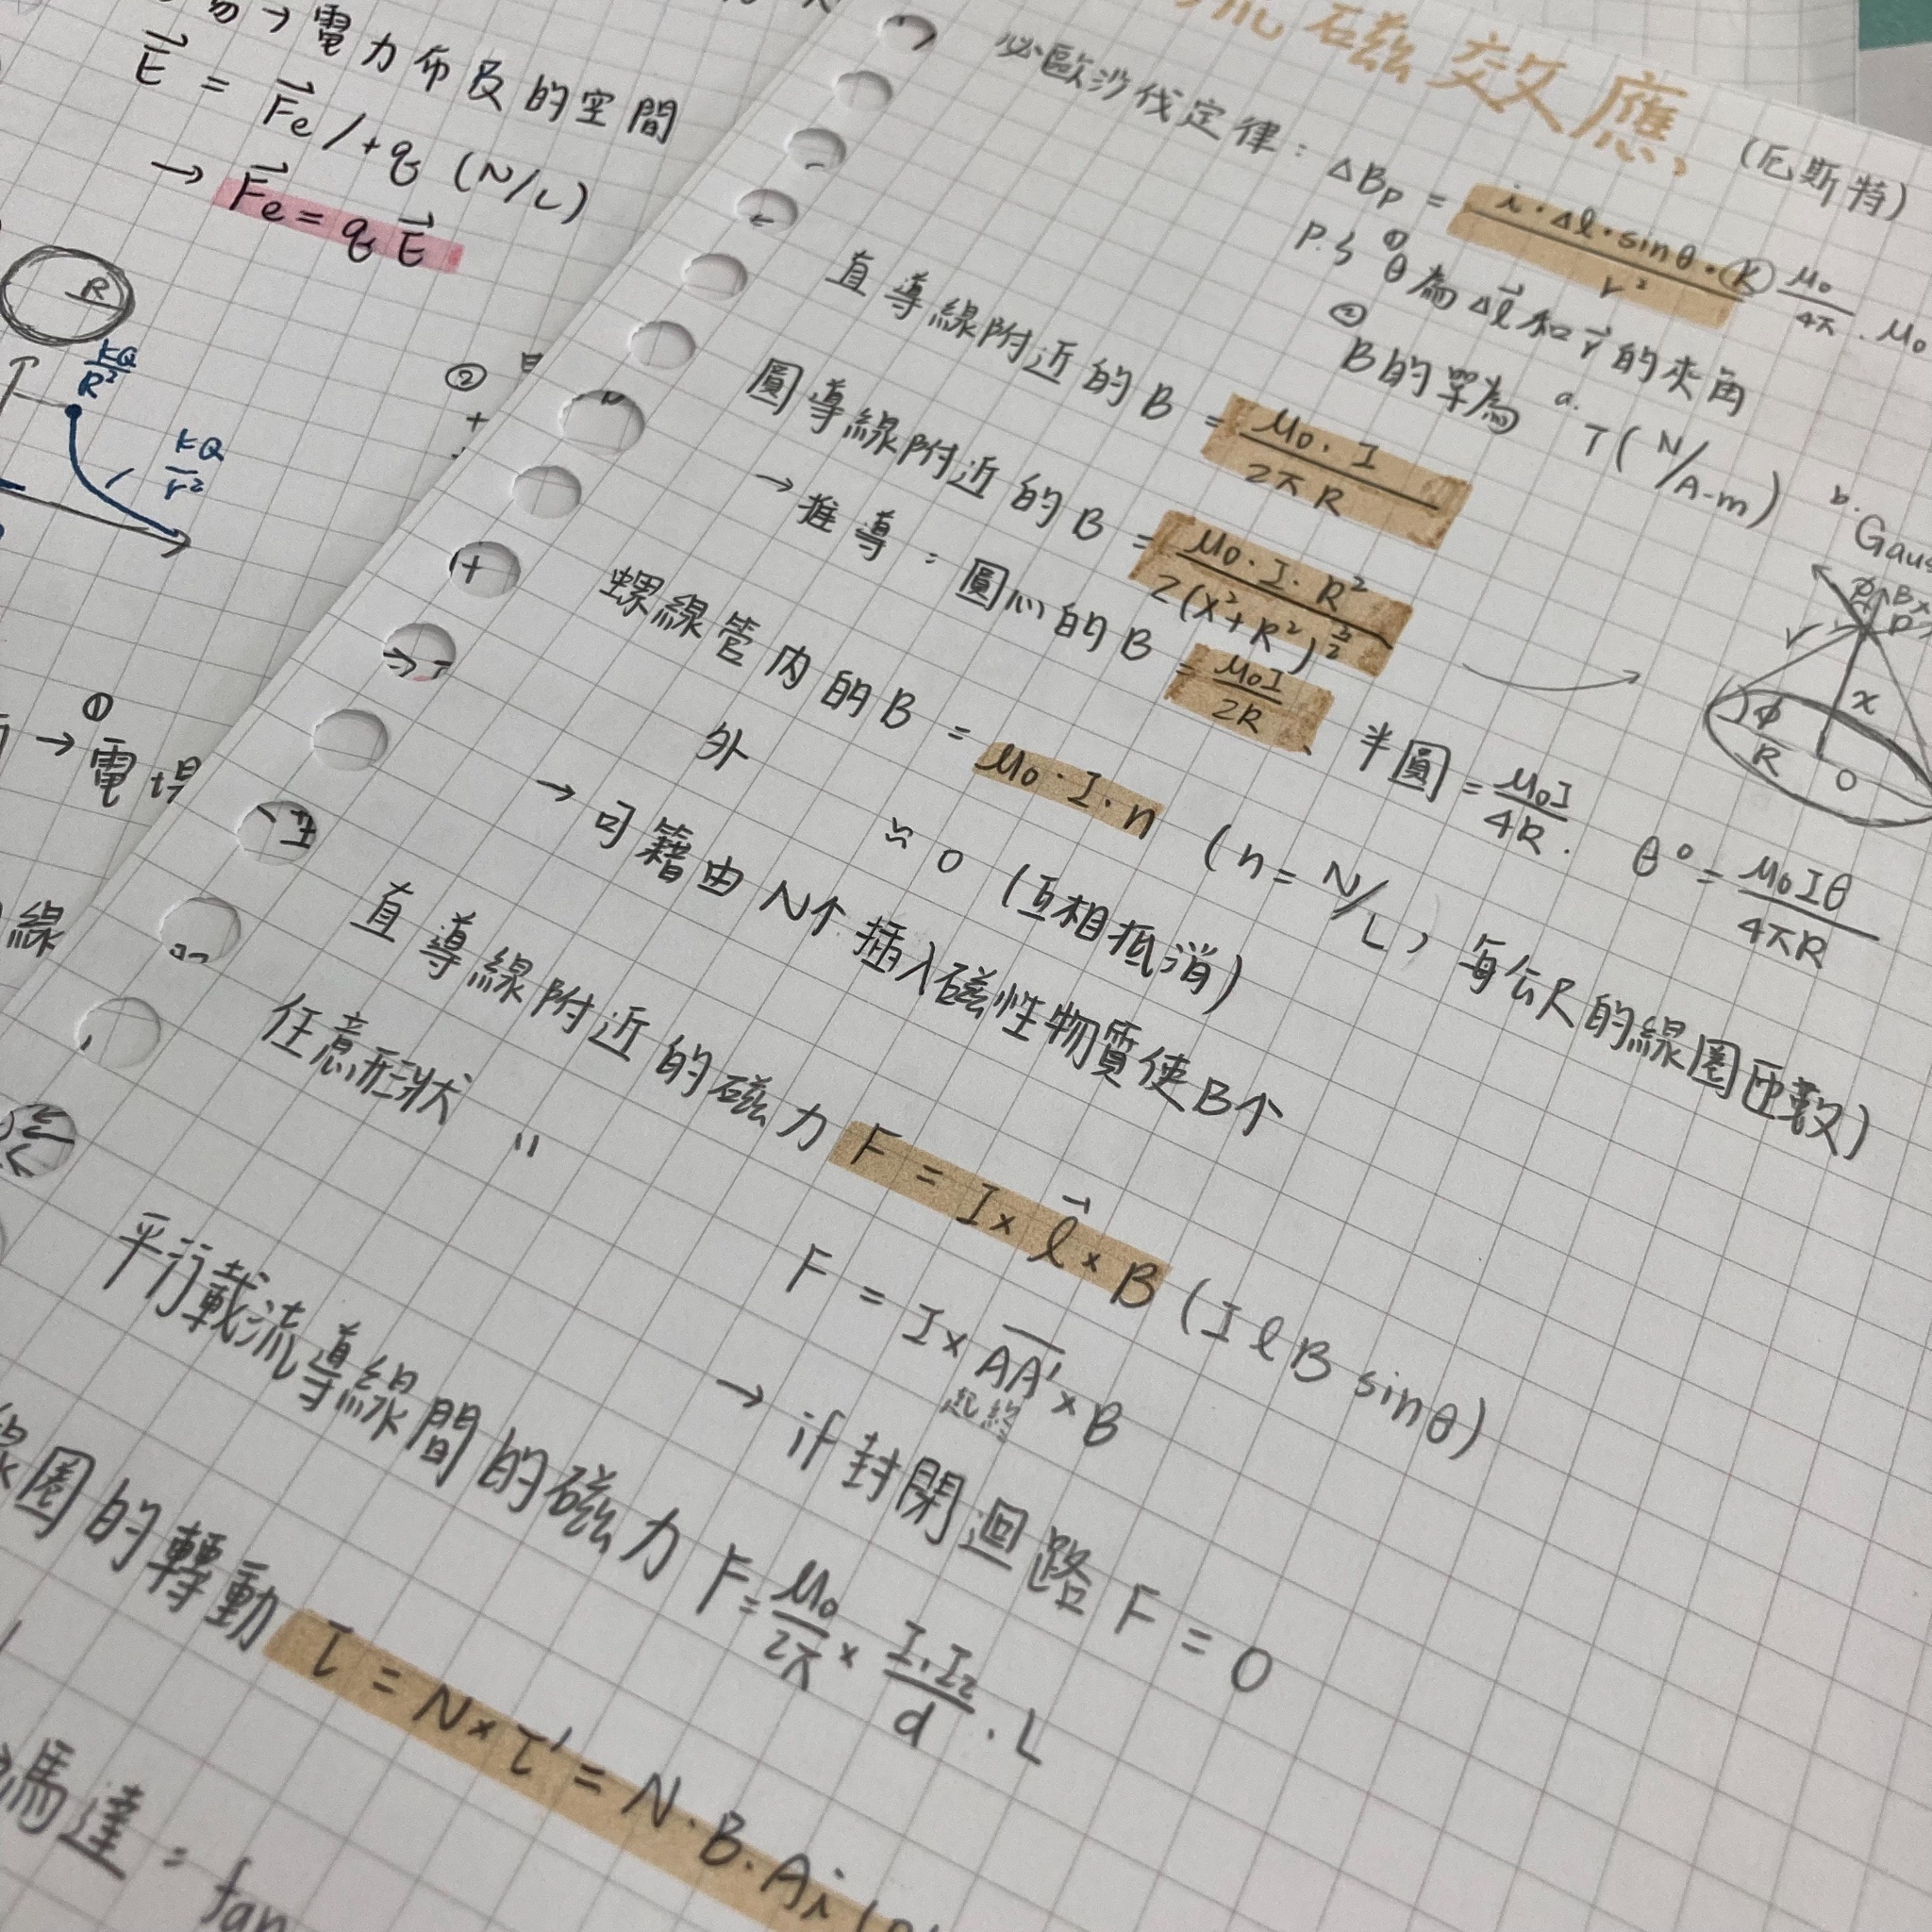 →電力布及的空間
E⃗ = F⃗e / +q (N/C)
→ F⃗e = q E⃗
R
kQ/R²
kQ/r²
②
+
①
→ 電場
線
流磁效應
(厄斯特)
必歐沙伐定律：ΔBp = i·Δl·sinθ·K / r²  μ₀/4π . μ₀
P.S ① θ為Δl⃗和r⃗的夾角
② B的單為 a. T(N/A-m) b. Gaus
直導線附近的B = μ₀·I / 2πR
圓導線附近的B = μ₀·I·R² / 2(x²+R²)^3/2
→推導：圓心的B = μ₀I/2R、半圓 = μ₀I/4R . θ° = μ₀Iθ/4πR
r
x
φ
R
O
螺線管內的B = μ₀·I·n (n = N/L, 每公尺的線圈匝數)
外 ≈ 0 (互相抵消)
→可籍由N↑插入磁性物質使B↑
直導線附近的磁力 F = I × l⃗ × B (I l B sinθ)
任意形狀 〃 F = I × AA' × B
起終
→ if 封閉迴路 F = 0
平行載流導線間的磁力 F = μ₀/2π × I₁I₂/d . L
線圈的轉動 τ = N×τ' = N·B·Ai
馮達：fan